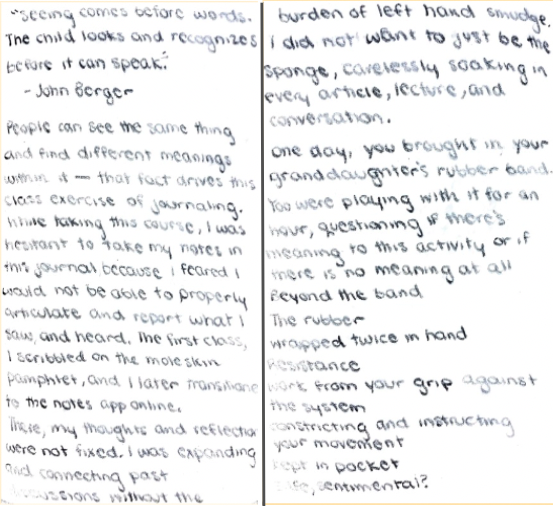 "seeing comes before words.
The child looks and recognizes
before it can speak."
- John Berger
People can see the same thing
and find different meanings
within it — that fact drives this
class exercise of journaling.
While taking this course, I was
hesitant to take my notes in
this journal because I feared I
would not be able to properly
articulate and report what I
saw, and heard. The first class,
I scribbled on the moleskin
pamphlet, and I later transitione
to the notes app online.
There, my thoughts and reflection
were not fixed. I was expanding
and connecting past
discussions without the
burden of left hand smudge.
I did not want to just be the
sponge, carelessly soaking in
every article, lecture, and
conversation.
one day, you brought in your
granddaughter's rubber band.
You were playing with it for an
hour, questioning if there's
meaning to this activity or if
there is no meaning at all
Beyond the band
The rubber
wrapped twice in hand
Resistance
work from your grip against
the system
constricting and instructing
your movement
kept in pocket
safe, sentimental?